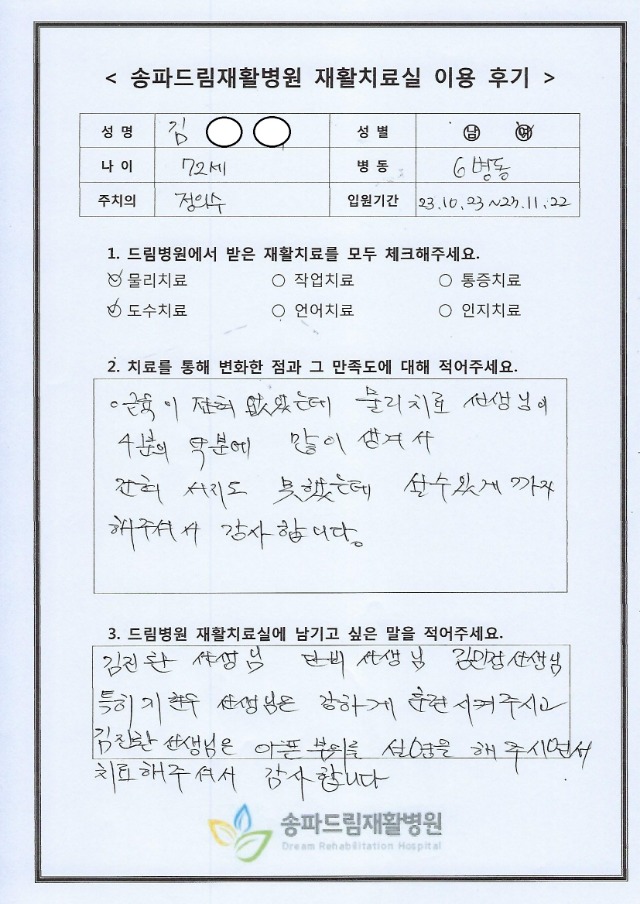 < 송파드림재활병원 재활치료실 이용 후기 >
성 명 김 ○ ○ 성 별 남 여
나 이 72세 병 동 6병동
주치의 정의수 입원기간 23.10.23~23.11.22
1. 드림병원에서 받은 재활치료를 모두 체크해주세요.
물리치료 ○ 작업치료 ○ 통증치료
도수치료 ○ 언어치료 ○ 인지치료
2. 치료를 통해 변화한 점과 그 만족도에 대해 적어주세요.
근육이 전혀 없었는데 물리치료 선생님
4분의 덕분에 많이 생겨서
전혀 서지도 못했는데 설수있게 까지
해주셔서 감사합니다.
3. 드림병원 재활치료실에 남기고 싶은 말을 적어주세요.
김진환 선생님 단비 선생님 김민정선생님
특히 선생님은 강하게 훈련시켜주시고
김진환선생님은 아픈 부위를 설명을 해 주시면서
치료해주셔서 감사합니다
송파드림재활병원
Dream Rehabilitation Hospital